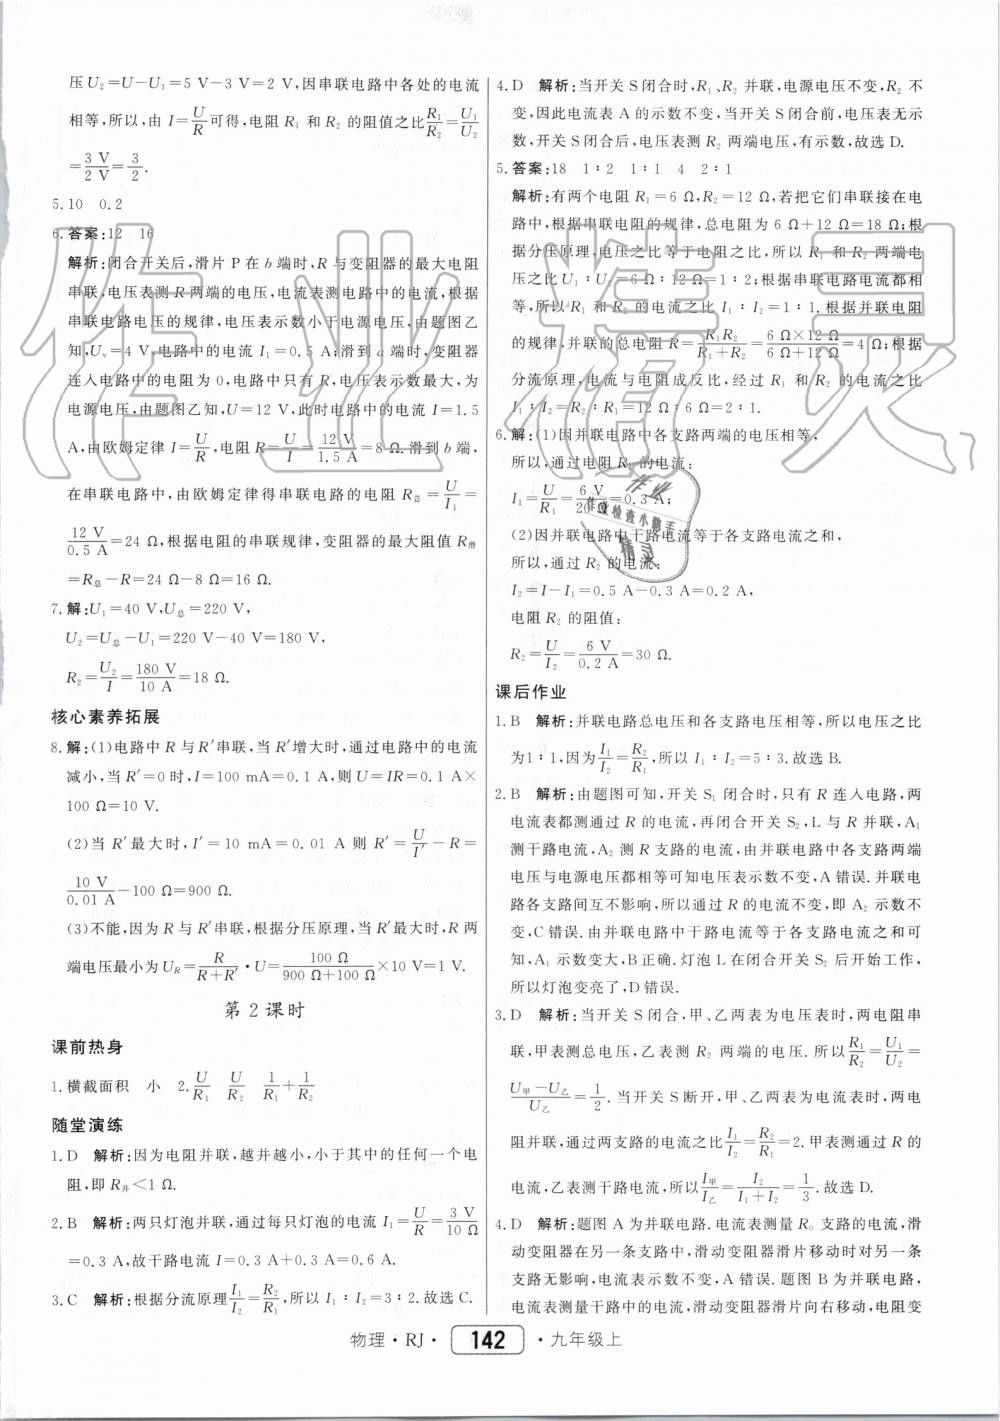 压U₂=U−U₁=5 V−3 V=2 V,因串联电路中各处的电流
相等,所以,由 I=U/R 可得,电阻 R₁ 和 R₂ 的阻值之比 R₁/R₂=U₁/U₂
=3 V/2 V=3/2.
5.10 0.2
6.答案:12 16
解析:闭合开关后,滑片 P 在 b 端时,R 与变阻器的最大电阻
串联,电压表测 R 两端的电压,电流表测电路中的电流,根据
串联电路电压的规律,电压表示数小于电源电压,由题图乙
知,Uᵥ=4 V,电路中的电流 I₁=0.5 A;滑到 a 端时,变阻器
连入电路中的电阻为 0,电路中只有 R,电压表示数最大,为
电源电压,由题图乙知,U=12 V,此时电路中的电流 I=1.5
A,由欧姆定律 I=U/R,电阻 R=U/I=12 V/1.5 A=8 Ω.滑到 b 端,
在串联电路中,由欧姆定律得串联电路的电阻 R总=U/I₁=
12 V/0.5 A=24 Ω,根据电阻的串联规律,变阻器的最大阻值 R滑
=R总−R=24 Ω−8 Ω=16 Ω.
7.解:U₁=40 V,U总=220 V,
U₂=U总−U₁=220 V−40 V=180 V,
R₂=U₂/I=180 V/10 A=18 Ω.
核心素养拓展
8.解:(1)电路中 R 与 R′串联,当 R′增大时,通过电路中的电流
减小,当 R′=0 时,I=100 mA=0.1 A,则 U=IR=0.1 A×
100 Ω=10 V.
(2)当 R′最大时,I′=10 mA=0.01 A 则 R′=U/I′−R=
10 V/0.01 A−100 Ω=900 Ω.
(3)不能,因为 R 与 R′串联,根据分压原理,当 R′最大时,R 两
端电压最小为 U_R=R/(R+R′)·U=100 Ω/(900 Ω+100 Ω)×10 V=1 V.
第 2 课时
课前热身
1.横截面积 小 2.U/R₁ U/R₂ 1/R₁+1/R₂
随堂演练
1.D 解析:因为电阻并联,越并越小,小于其中的任何一个电
阻,即 R并<1 Ω.
2.B 解析:两只灯泡并联,通过每只灯泡的电流 I₁=U/R=3 V/10 Ω
=0.3 A,故干路电流 I=0.3 A+0.3 A=0.6 A.
3.C 解析:根据分流原理 I₁/I₂=R₂/R₁,所以 I₁∶I₂=3∶2.故选 C.
4.D 解析:当开关 S 闭合时,R₁、R₂ 并联,电源电压不变,R₂ 不
变,因此电流表 A 的示数不变,当开关 S 闭合前,电压表无示
数,开关 S 闭合后,电压表测 R₂ 两端电压,有示数,故选 D.
5.答案:18 1∶2 1∶1 4 2∶1
解析:有两个电阻 R₁=6 Ω,R₂=12 Ω,若把它们串联接在电
路中,根据串联电阻的规律,总电阻为 6 Ω+12 Ω=18 Ω;根
据分压原理,电压之比等于电阻之比,所以 R₁ 和 R₂ 两端电
压之比 U₁∶U₂=6 Ω∶12 Ω=1∶2;根据串联电路电流都相
等,所以 R₁ 和 R₂ 的电流之比 I₁∶I₂=1∶1.根据并联电阻
的规律,并联的总电阻 R=R₁R₂/(R₁+R₂)=6 Ω×12 Ω/(6 Ω+12 Ω)=4 Ω;根据
分流原理,电流与电阻成反比,经过 R₁ 和 R₂ 的电流之比
I₁∶I₂=R₂∶R₁=12 Ω∶6 Ω=2∶1.
6.解:(1)因并联电路中各支路两端的电压相等,
所以,通过电阻 R₁ 的电流:
I₁=U/R₁=6 V/20 Ω=0.3 A;
(2)因并联电路中干路电流等于各支路电流之和,
所以,通过 R₂ 的电流:
I₂=I−I₁=0.5 A−0.3 A=0.2 A,
电阻 R₂ 的阻值:
R₂=U/I₂=6 V/0.2 A=30 Ω.
课后作业
1.B 解析:并联电路总电压和各支路电压相等,所以电压之比
为1∶1,因为 I₁/I₂=R₂/R₁,所以 I₁∶I₂=5∶3.故选 B.
2.B 解析:由题图可知,开关 S₁ 闭合时,只有 R 连入电路,两
电流表都测通过 R 的电流,再闭合开关 S₂,L 与 R 并联,A₁
测干路电流,A₂ 测 R 支路的电流,由并联电路中各支路两端
电压与电源电压相等可知电压表示数不变,A 错误.并联电
路各支路间互不影响,所以通过 R 的电流不变,即 A₂ 示数不
变,C 错误.由并联电路中干路电流等于各支路电流之和可
知,A₁ 示数变大,B 正确.灯泡 L 在闭合开关 S₂ 后开始工作,
所以灯泡变亮了,D 错误.
3.D 解析:当开关 S 闭合,甲、乙两表为电压表时,两电阻串
联,甲表测总电压,乙表测 R₂ 两端的电压.所以 R₁/R₂=U₁/U₂=
(U甲−U乙)/U乙=1/2.当开关 S 断开,甲、乙两表为电流表时,两电
阻并联,通过两支路的电流之比 I₁/I₂=R₂/R₁=2.甲表测通过 R 的
电流,乙表测干路电流,所以 I甲/I乙=I₂/(I₁+I₂)=1/3.故选 D.
4.D 解析:题图 A 为并联电路.电流表测量 R₀ 支路的电流,滑
动变阻器在另一条支路中,滑动变阻器滑片移动时对另一条
支路无影响,电流表示数不变,A 错误.题图 B 为并联电路,
电流表测量干路中的电流,滑动变阻器滑片向右移动,电阻变
物理·RJ· 142 ·九年级上
作业精灵
作业
作业检查小助手
精灵